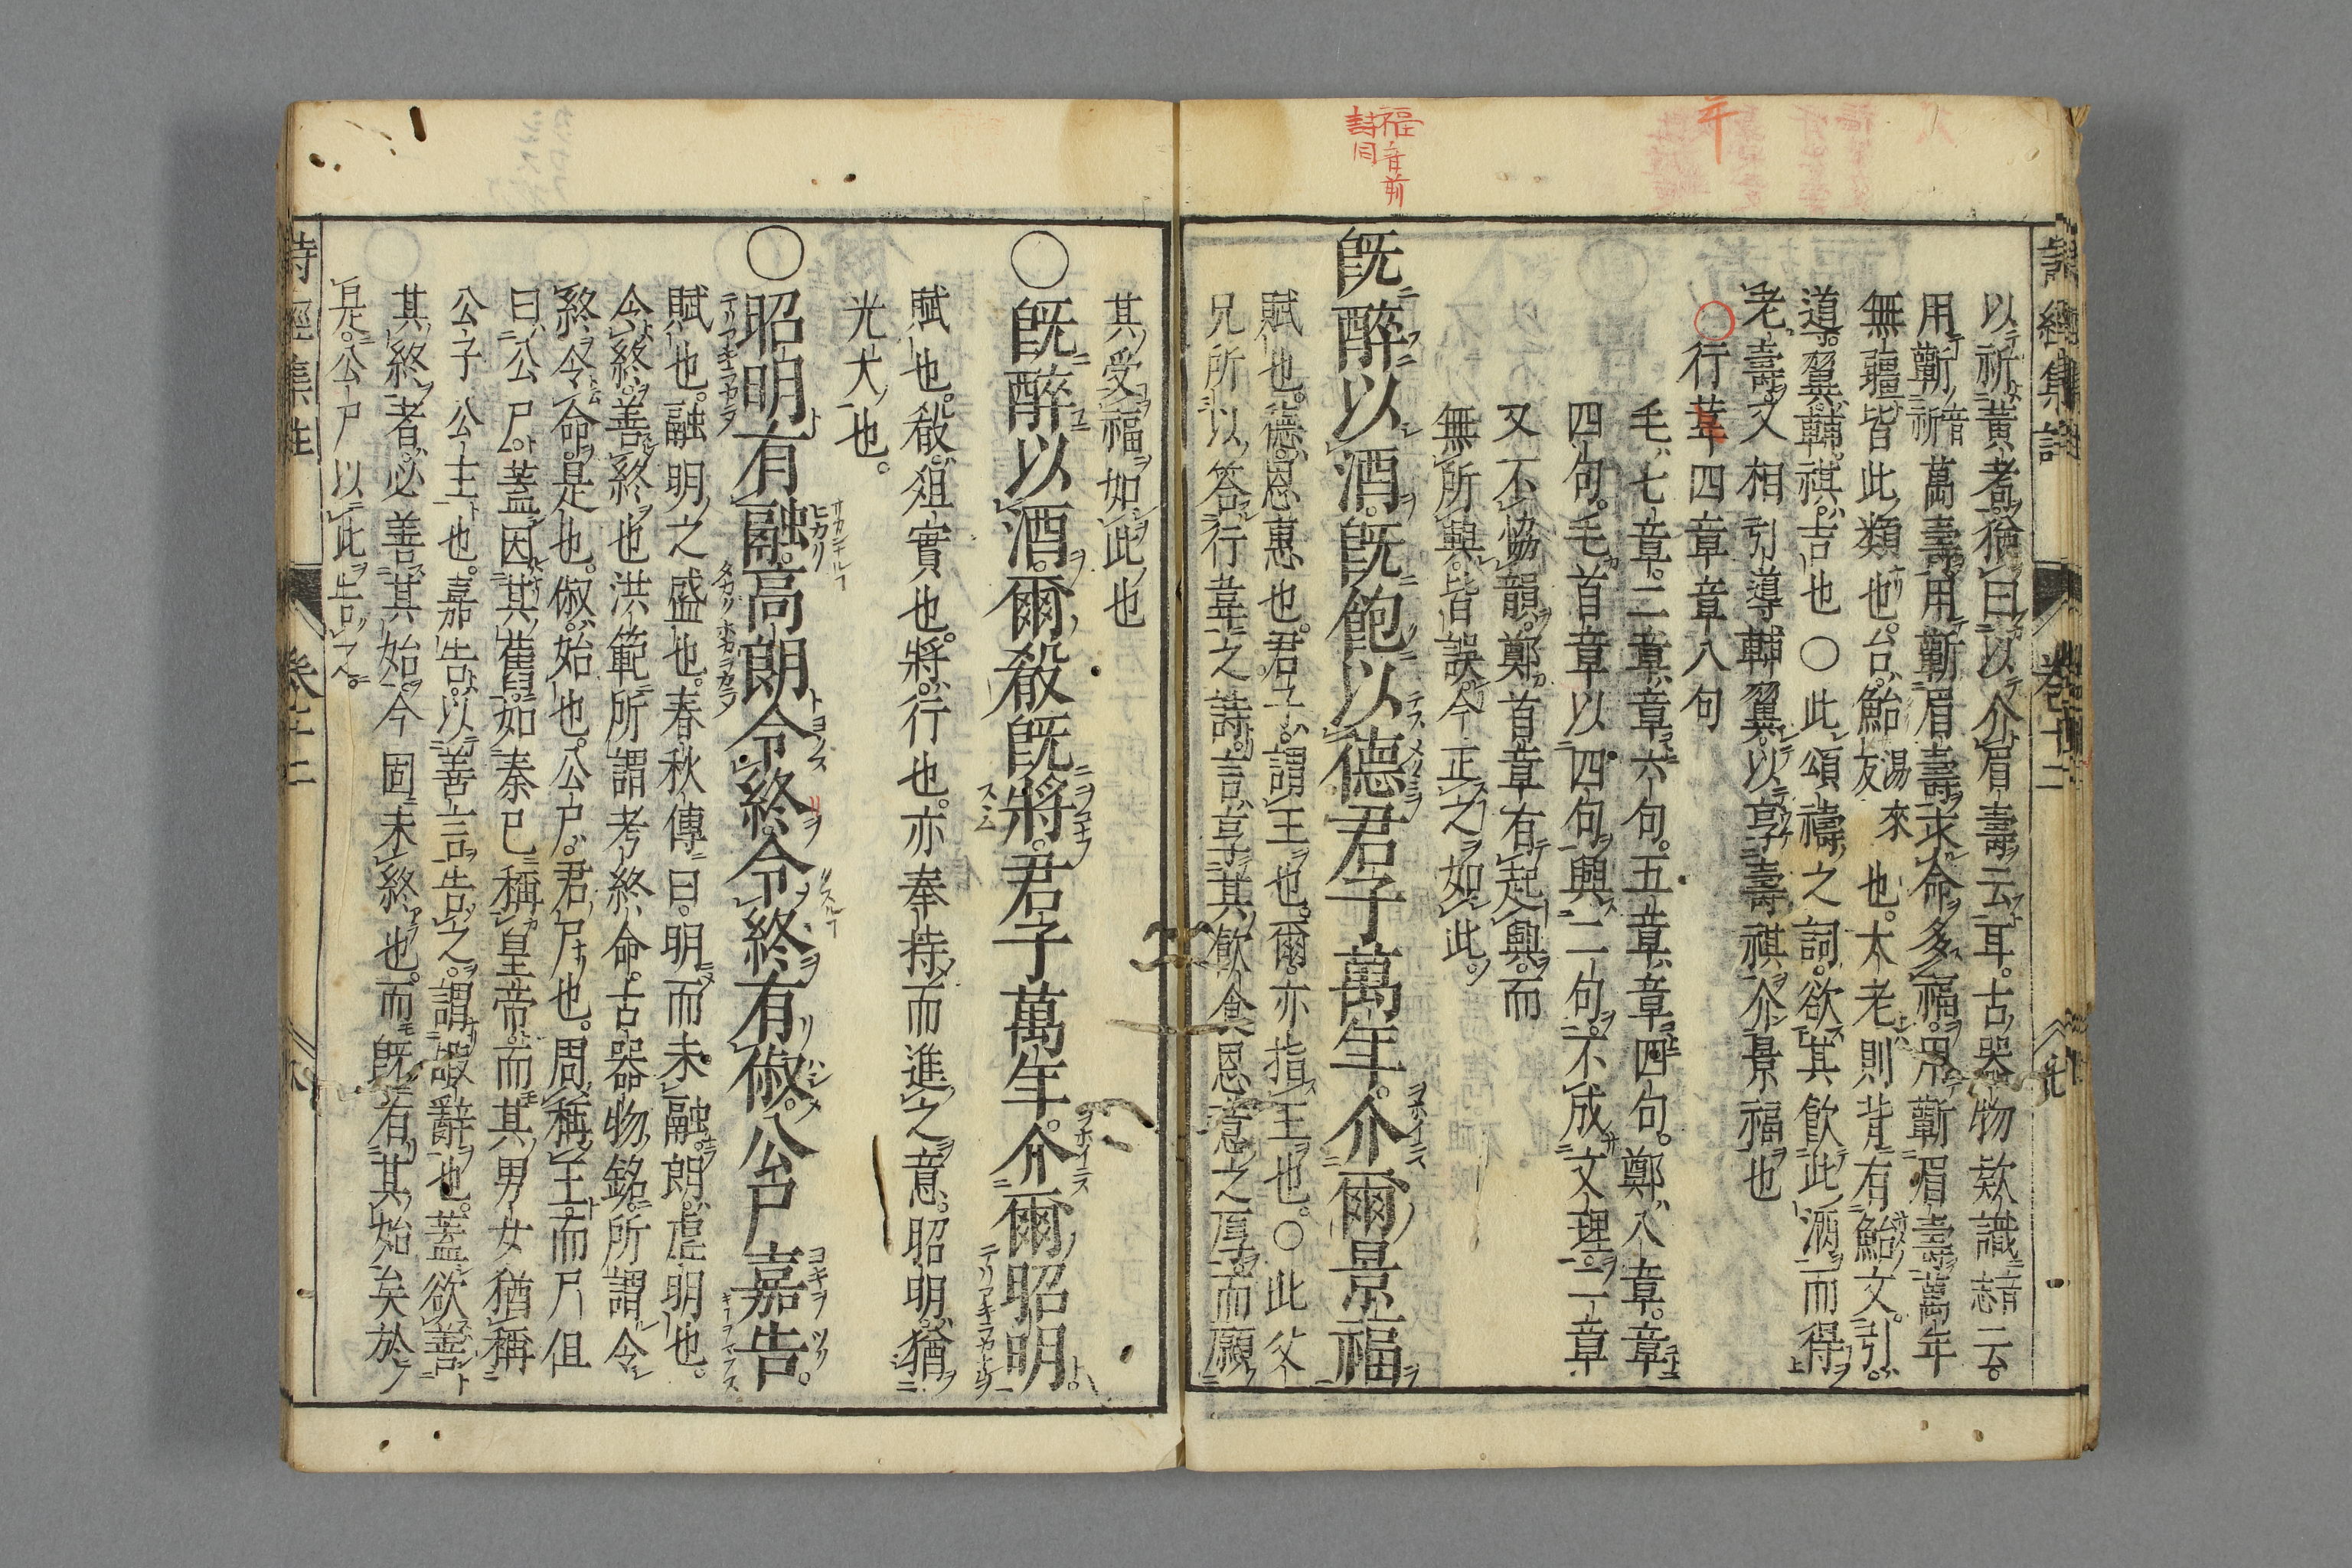 詩經集註 卷十二
以祈黃耇猶曰以介眉壽云耳。古器物欵識音志云。
用蘄音祈萬壽用蘄眉壽永命多福用蘄眉壽萬年
無疆皆此類也。台鮐湯來友也。大老則背有鮐文。引
導。翼輔。祺吉也〇此頌禱之詞。欲其飮此酒而得
老壽又相引導輔翼以享壽祺介景福也
〇行葦四章章八句
毛七章二章章六句。五章章四句。鄭八章。章
四句。毛首章以四句興二句。不成文理。二章
又不恊韻。鄭首章有起興。而
無所興。皆誤。今正之如此。
既醉以酒。既飽以德君子萬年。介爾景福
賦也。德恩惠也。君子。謂王也。爾亦指王也。〇此父
兄所以答行葦之詩。言享其飮食恩意之厚。而願
福音前
詩同
其受福如此也
〇既醉以酒。爾殽既將。君子萬年。介爾昭明。
賦也。殽俎實也。將行也。亦奉持而進之意。昭明猶
光大也。
〇昭明有融。高朗令終。令終有俶。公尸嘉告。
賦也。融明之盛也。春秋傳曰。明而未融。朗虛明也。
令終。善終也洪範所謂考終命。古器物銘所謂令
終令命。是也。俶始也。公尸。君尸也。周稱王。而尸但
曰公尸。蓋因其舊。如秦已稱皇帝。而其男女猶稱
公子公主也。嘉告。以善言告之。謂嘏辭也。蓋欲善
其終者。必善其始。今固未終也。而既有其始矣於
是。公尸以此告之。
詩經集註 卷十二